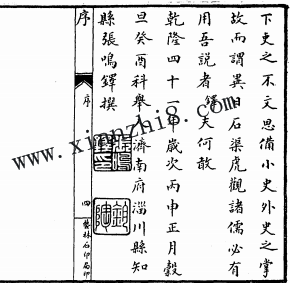 下吏之不文思備小史外史之掌
故而謂異日石渠虎觀諸儒必有
用吾説者鐸夫何敢
乾隆四十一年歲次丙申正月穀
旦癸酉科舉人濟南府淄川縣知
縣張鳴鐸撰
序
序
四
藝林石印局印
www.xianzhi8.com